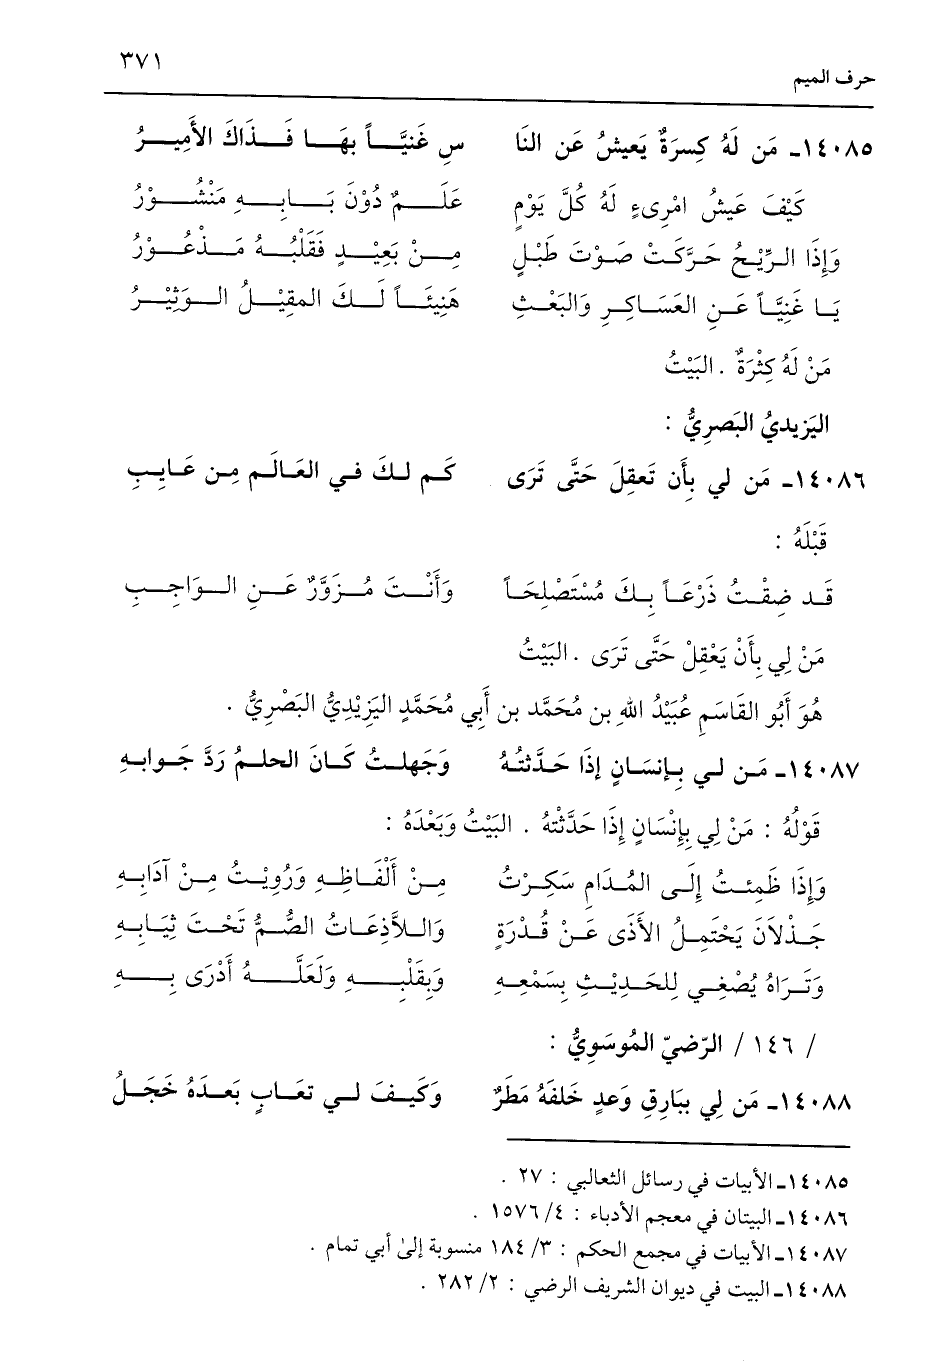 ٣٧١
حرف الميم
١٤٠٨٥ـ مَن لَهُ كِسرَةٌ يَعيشُ عَن النَا سِ غَنيَّاً بهَا فَذَاكَ الأَميرُ
كَيْفَ عَيشُ امْرِىءٍ لَهُ كُلَّ يَوْمٍ عَلَمٌ دُوْنَ بَابِهِ مَنْشُوْرُ
وَإِذَا الرِّيْحُ حَرَّكَتْ صَوْتَ طَبْلٍ مِنْ بَعِيْدٍ فَقَلْبُهُ مَذْعُوْرُ
يَا غَنِيَّاً عَنِ العَسَاكِرِ وَالبَعْثِ هَنِيْئَاً لَكَ المقِيْلُ الوَثِيْرُ
مَنْ لَهُ كِثْرَةٌ . البَيْتُ
اليَزيديُ البَصرِيُّ :
١٤٠٨٦ـ مَن لي بِأَن تَعقِلَ حَتَّى تَرَى كَم لكَ في العَالَم مِن عَايِبِ
قَبْلَهُ :
قَد ضِقْتُ ذَرْعَاً بِكَ مُسْتَصْلِحَاً وَأَنْتَ مُزْوَرٌّ عَنِ الوَاجِبِ
مَنْ لِي بِأَنْ يَعْقِلْ حَتَّى تَرَى . البَيْتُ
هُوَ أَبُو القَاسَمِ عُبَيْدُ اللهِ بن مُحَمَّد بن أَبِي مُحَمَّدٍ اليَزِيْدِيُّ البَصْرِيُّ .
١٤٠٨٧ـ مَن لي بِإنسَانٍ إذَا حَدَّثتُهُ وَجَهلتُ كَانَ الحلمُ رَدَّ جَوابهِ
قَوْلُهُ : مَنْ لِي بِإِنْسَانٍ إِذَا حَدَّثْتهُ . البَيْتُ وَبَعْدَهُ :
وَإِذَا ظَمِئتُ إِلَى المُدَامِ سَكِرْتُ مِنْ أَلْفَاظِهِ وَرُوِيْتُ مِنْ آدَابِهِ
جَذْلاَنَ يَحْتَمِلُ الأَذَى عَنْ قُدْرَةٍ وَاللاَّذِعَاتُ الصُّمُّ تَحْتَ ثِيَابِهِ
وَتَرَاهُ يُصْغِي لِلحَدِيْثِ بِسَمْعِهِ وَبِقَلْبِهِ وَلَعَلَّهُ أَدْرَى بِهِ
/ ١٤٦ / الرّضيّ المُوسَوِيُّ :
١٤٠٨٨ـ مَن لِي بِبَارِقِ وَعدٍ خَلفَهُ مَطَرٌ وَكَيفَ لي تعَابٍ بَعدَهُ خَجَلُ
١٤٠٨٥ـ الأبيات في رسائل الثعالبي : ٢٧ .
١٤٠٨٦ـ البيتان في معجم الأدباء : ٤/ ١٥٧٦ .
١٤٠٨٧ـ الأبيات في مجمع الحكم : ٣/ ١٨٤ منسوبة إلى أبي تمام .
١٤٠٨٨ـ البيت في ديوان الشريف الرضي : ٢/ ٢٨٢ .